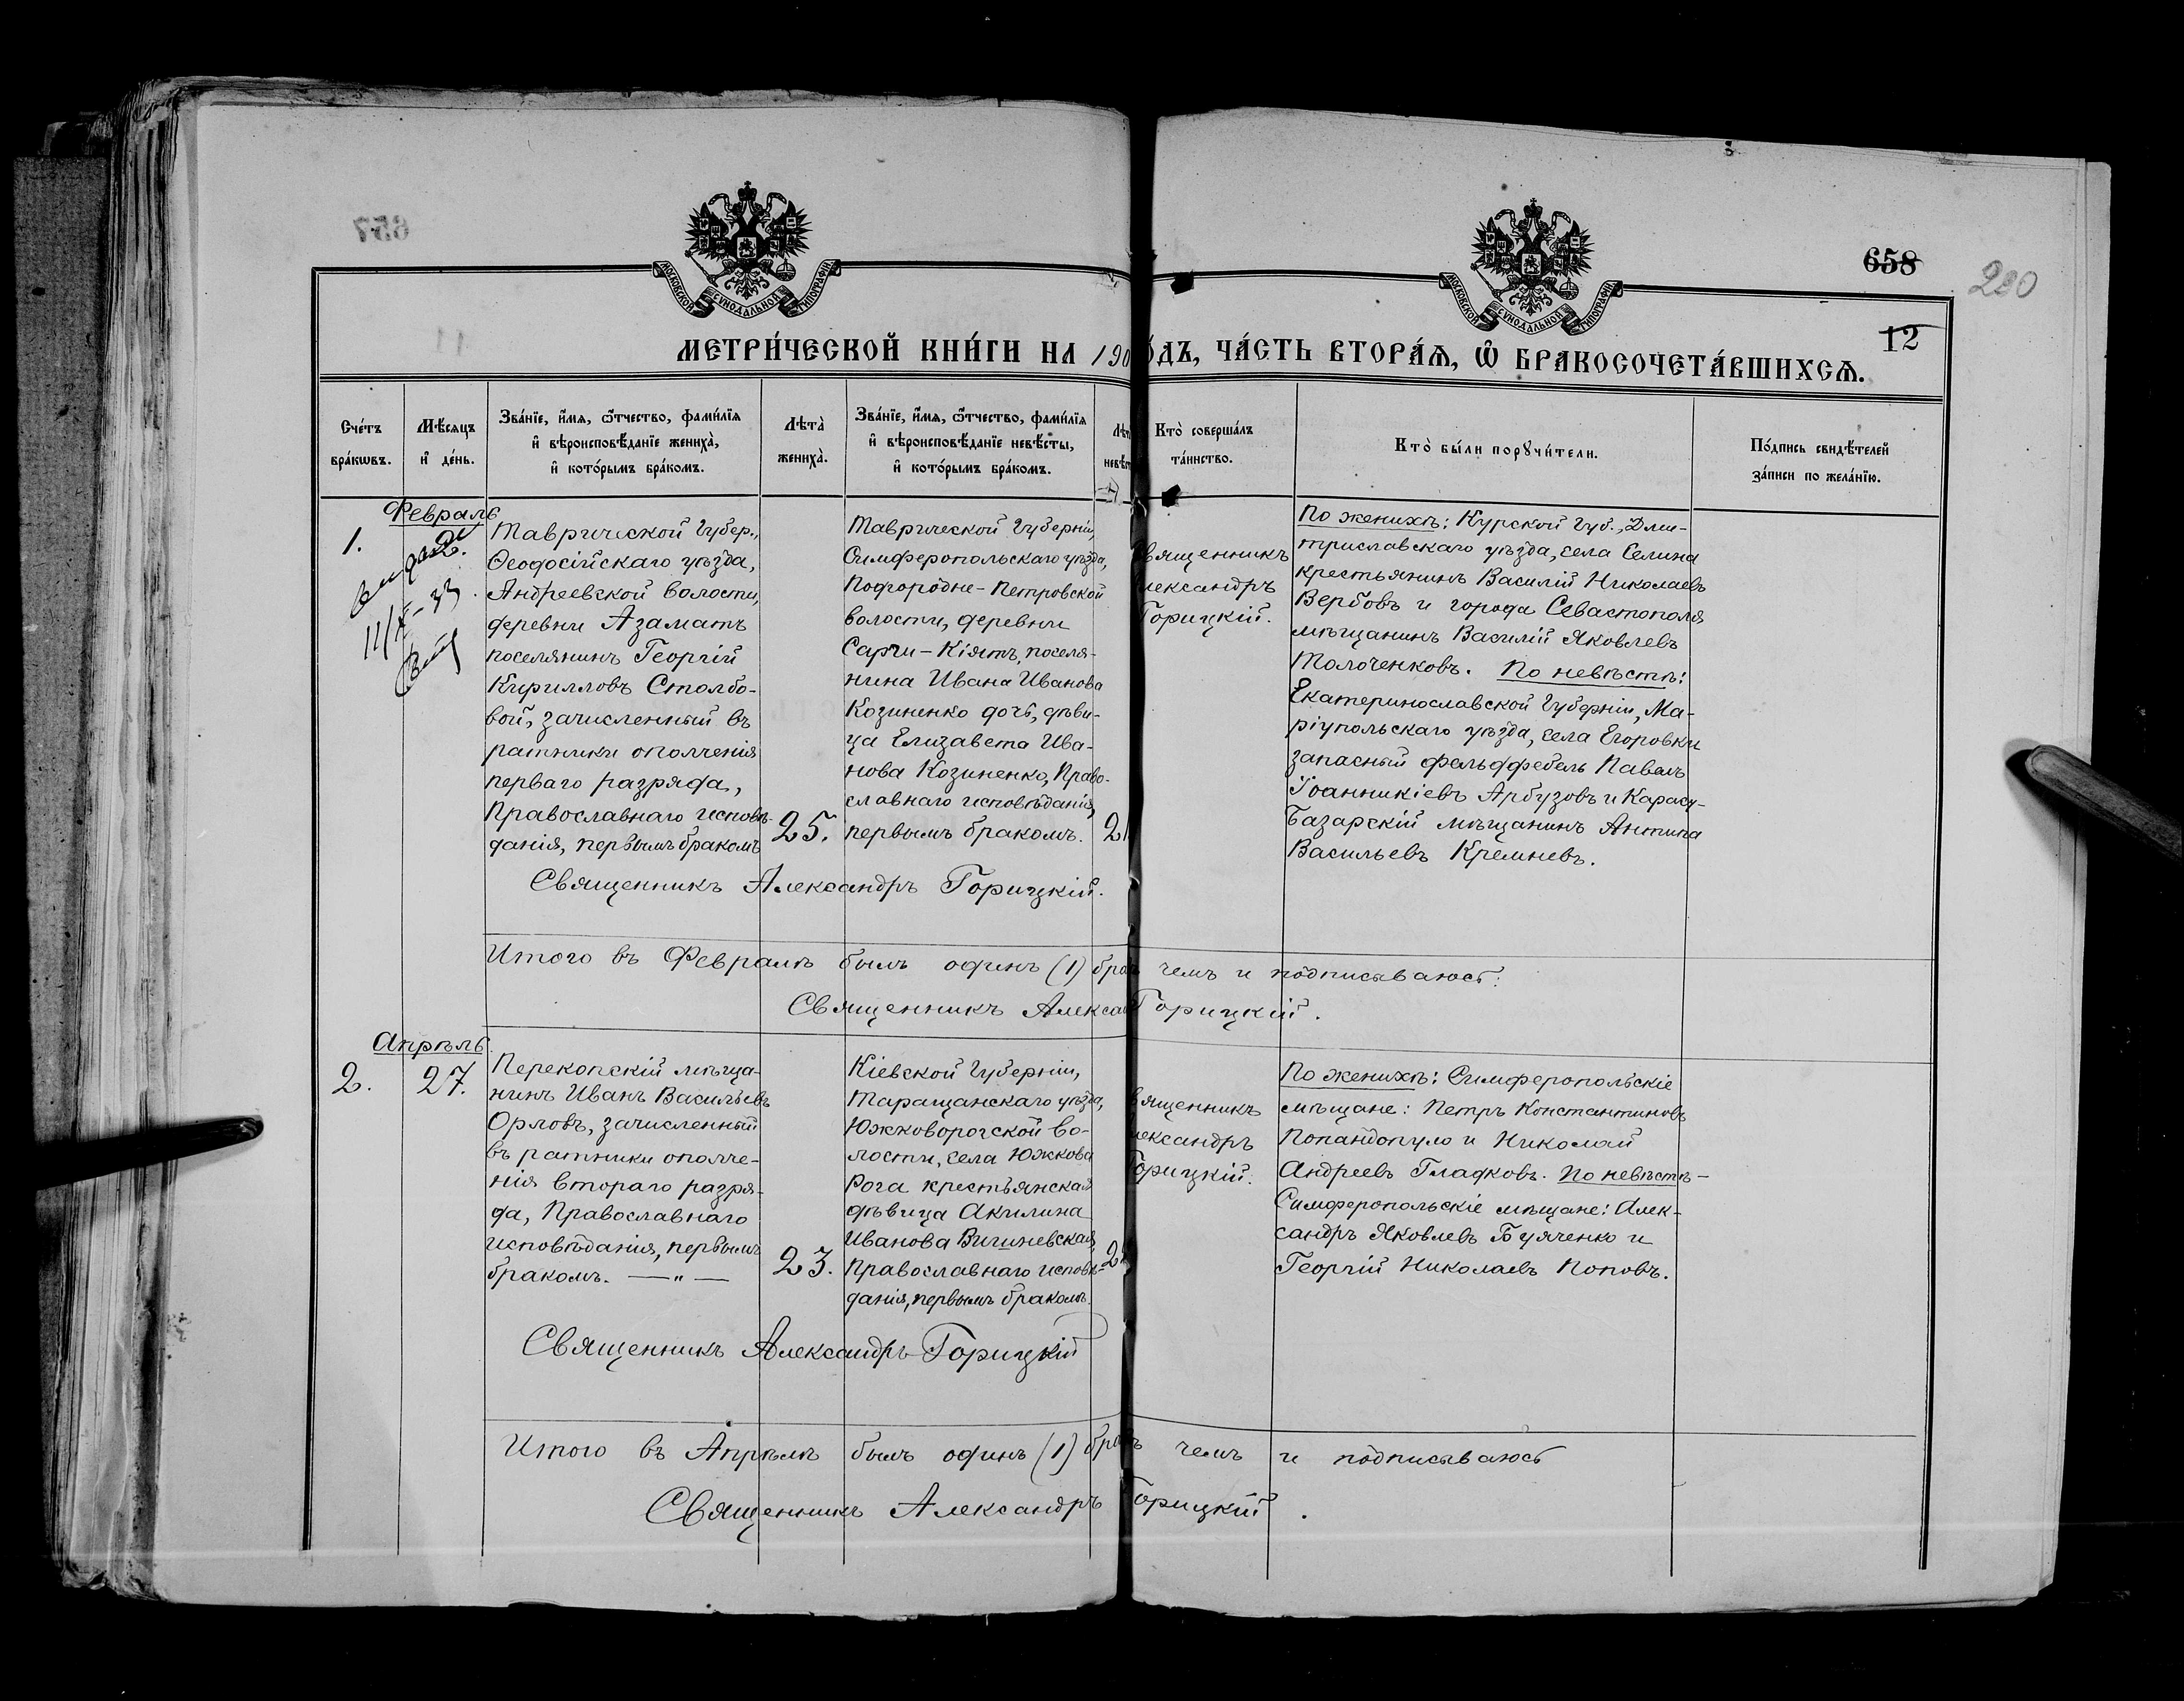 657
МОСКОВСКОЙ СѴНОДАЛЬНОЙ ТИПОГРАФІИ
МОСКОВСКОЙ СѴНОДАЛЬНОЙ ТИПОГРАФІИ
658
200
11
12
МЕТРИ́ЧЕСКОЙ КНИ́ГИ НА 190 О́ДЪ, ЧА́СТЬ ВТОРА́Ѧ, Ѽ БРАКОСОЧЕТА́ВШИХСѦ.
Сче́тъ
бра́кѡвъ.
Мѣ́сяцъ
и҆ де́нь.
Зва́нїе, и҆́мя, ѻ҆́тчество, фами́лїя
и҆ вѣроисповѣ́данїе жениха̀,
и҆ кото́рымъ бра́комъ.
Лѣта̀
жениха̀.
Зва́нїе, и҆́мя, ѻ҆́тчество, фами́лїя
и҆ вѣроисповѣ́данїе невѣ́сты,
и҆ кото́рымъ бра́комъ.
Лѣт
невѣст
Кто̀ соверша́лъ
та́инство.
Кто̀ бы́ли порꙋчи́тели.
По́дпись свидѣ́телей
за́писи по жела́нїю.
Февраль
1.
2.
11/X-33
Таврической Губер.,
Ѳеодосійскаго уѣзда,
Андреевской волости,
деревни Азаматъ
поселянинъ Георгій
Кирилловъ Столбо-
вой, зачисленный въ
ратники ополченія
перваго разряда,
Православнаго исповѣ-
данія, первымъ бракомъ
25.
Таврической Губерніи,
Симферопольскаго уѣзда,
Подгородне-Петровской
волости, деревни
Сарчи-Кіятъ, поселя-
нина Ивана Иванова
Козиненко дочь, дѣви-
ца Елизавета Ива-
нова Козиненко, Право-
славнаго исповѣданія,
первымъ бракомъ.
21
вященникъ
лександръ
Горицкій.
По женихѣ: Курской Губ., Дми-
триславскаго уѣзда, села Селина
крестьянинъ Василій Николаевъ
Вербовъ и города Севастополя
мѣщанинъ Василій Яковлевъ
Толоченковъ. По невѣстѣ:
Екатеринославской Губерніи, Ма-
ріупольскаго уѣзда, села Егоровки
запасный фельдфебель Павелъ
Іоанникіевъ Арбузовъ и Карасу-
Базарскій мѣщанинъ Антипа
Васильевъ Кремневъ.
Священникъ Александръ Горицкій.
Итого въ Февралѣ былъ одинъ (1) бракъ чемъ и подписываюсь:
Священникъ Алекса Горицкій.
Апрѣль
2.
27.
Перекопскій мѣща-
нинъ Иванъ Васильевъ
Орловъ, зачисленный
въ ратники ополче-
нія втораго разря-
да, Православнаго
исповѣданія, первымъ
бракомъ. — „ —
23.
Кіевской Губерніи,
Таращанскаго уѣзда,
Южковорогской во-
лости, села Южкова
Рога крестьянская
дѣвица Акилина
Иванова Вишневская,
Православнаго исповѣ-
данія, первымъ бракомъ.
вященникъ
лександръ
Горицкій.
По женихѣ: Симферопольскіе
мѣщане: Петръ Константиновъ
Попандопуло и Николай
Андреевъ Гладковъ. По невѣстѣ-
Симферопольскіе мѣщане: Алек-
сандръ Яковлевъ Буяченко и
Георгій Николаевъ Поповъ.
Священникъ Александръ Горицкій
Итого въ Апрѣлѣ былъ одинъ (1) бракъ чемъ и подписываюсь
Священникъ Александръ Горицкій.